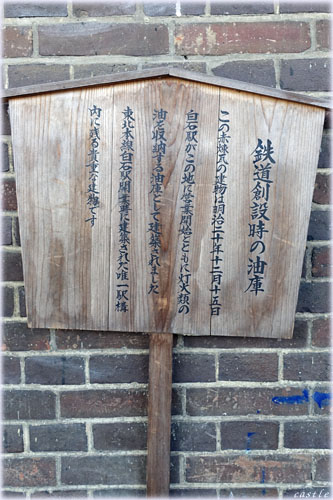 鉄道創設時の油庫
この赤煉瓦の建物は明治二十年十二月十五日
白石駅がこの地に営業開始とともに灯火類の
油を収納する油庫として建築されました
東北本線白石駅開業時に建築された唯一駅構
内に残る貴重な建物です
castle